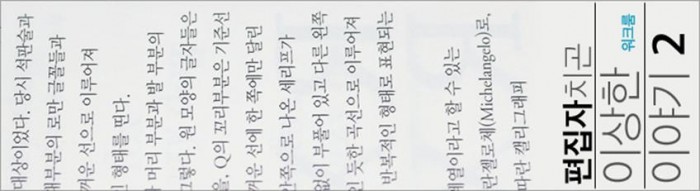 대상이었다. 당시 석판술과
대부분의 로만 글꼴들과
까운 선으로 이루어져
형태를 띤다.
머리 부분과 발 부분의
그렇다. 원 모양의 글자들은
을, Q의 꼬리부분은 기준선
까운 선에 한 쪽에만 달린
안쪽으로 나온 세리프가
없이 부풀어 있고 다른 왼쪽
인 듯한 곡선으로 이루어져
반복적인 형태로 표현되는
계열이라고 할 수 있는
란젤로체(Michelangelo)로,
따란 캘리그래피
편집자치고
이상한
워크룸
이야기 2